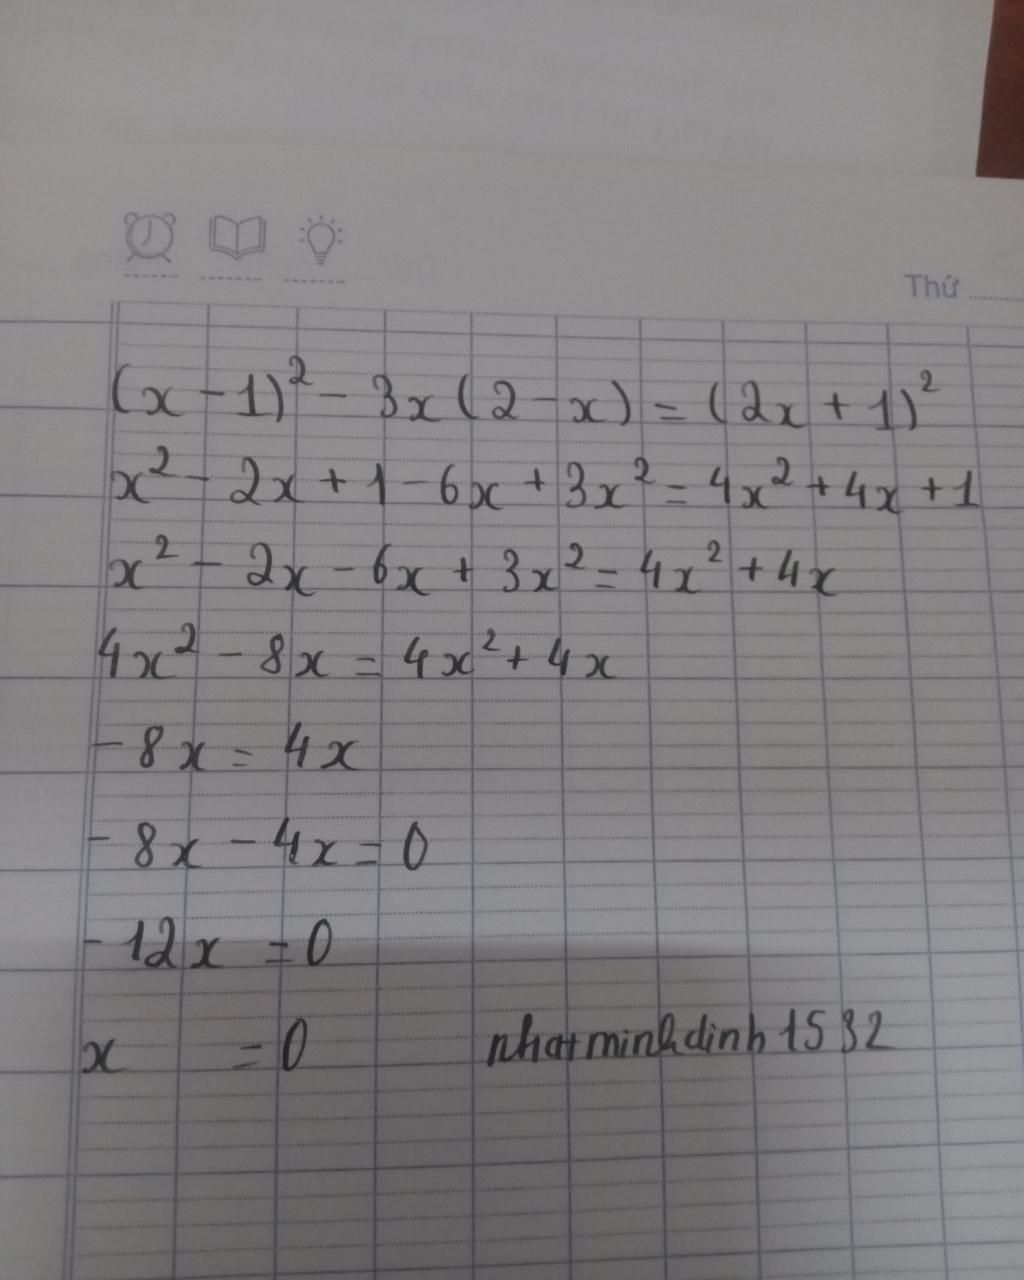 Thứ
(x - 1)² - 3x(2 - x) = (2x + 1)²
x² - 2x + 1 - 6x + 3x² = 4x² + 4x + 1
x² - 2x - 6x + 3x² = 4x² + 4x
4x² - 8x = 4x² + 4x
- 8x = 4x
- 8x - 4x = 0
- 12x = 0
x = 0 nhatminhdinh1532